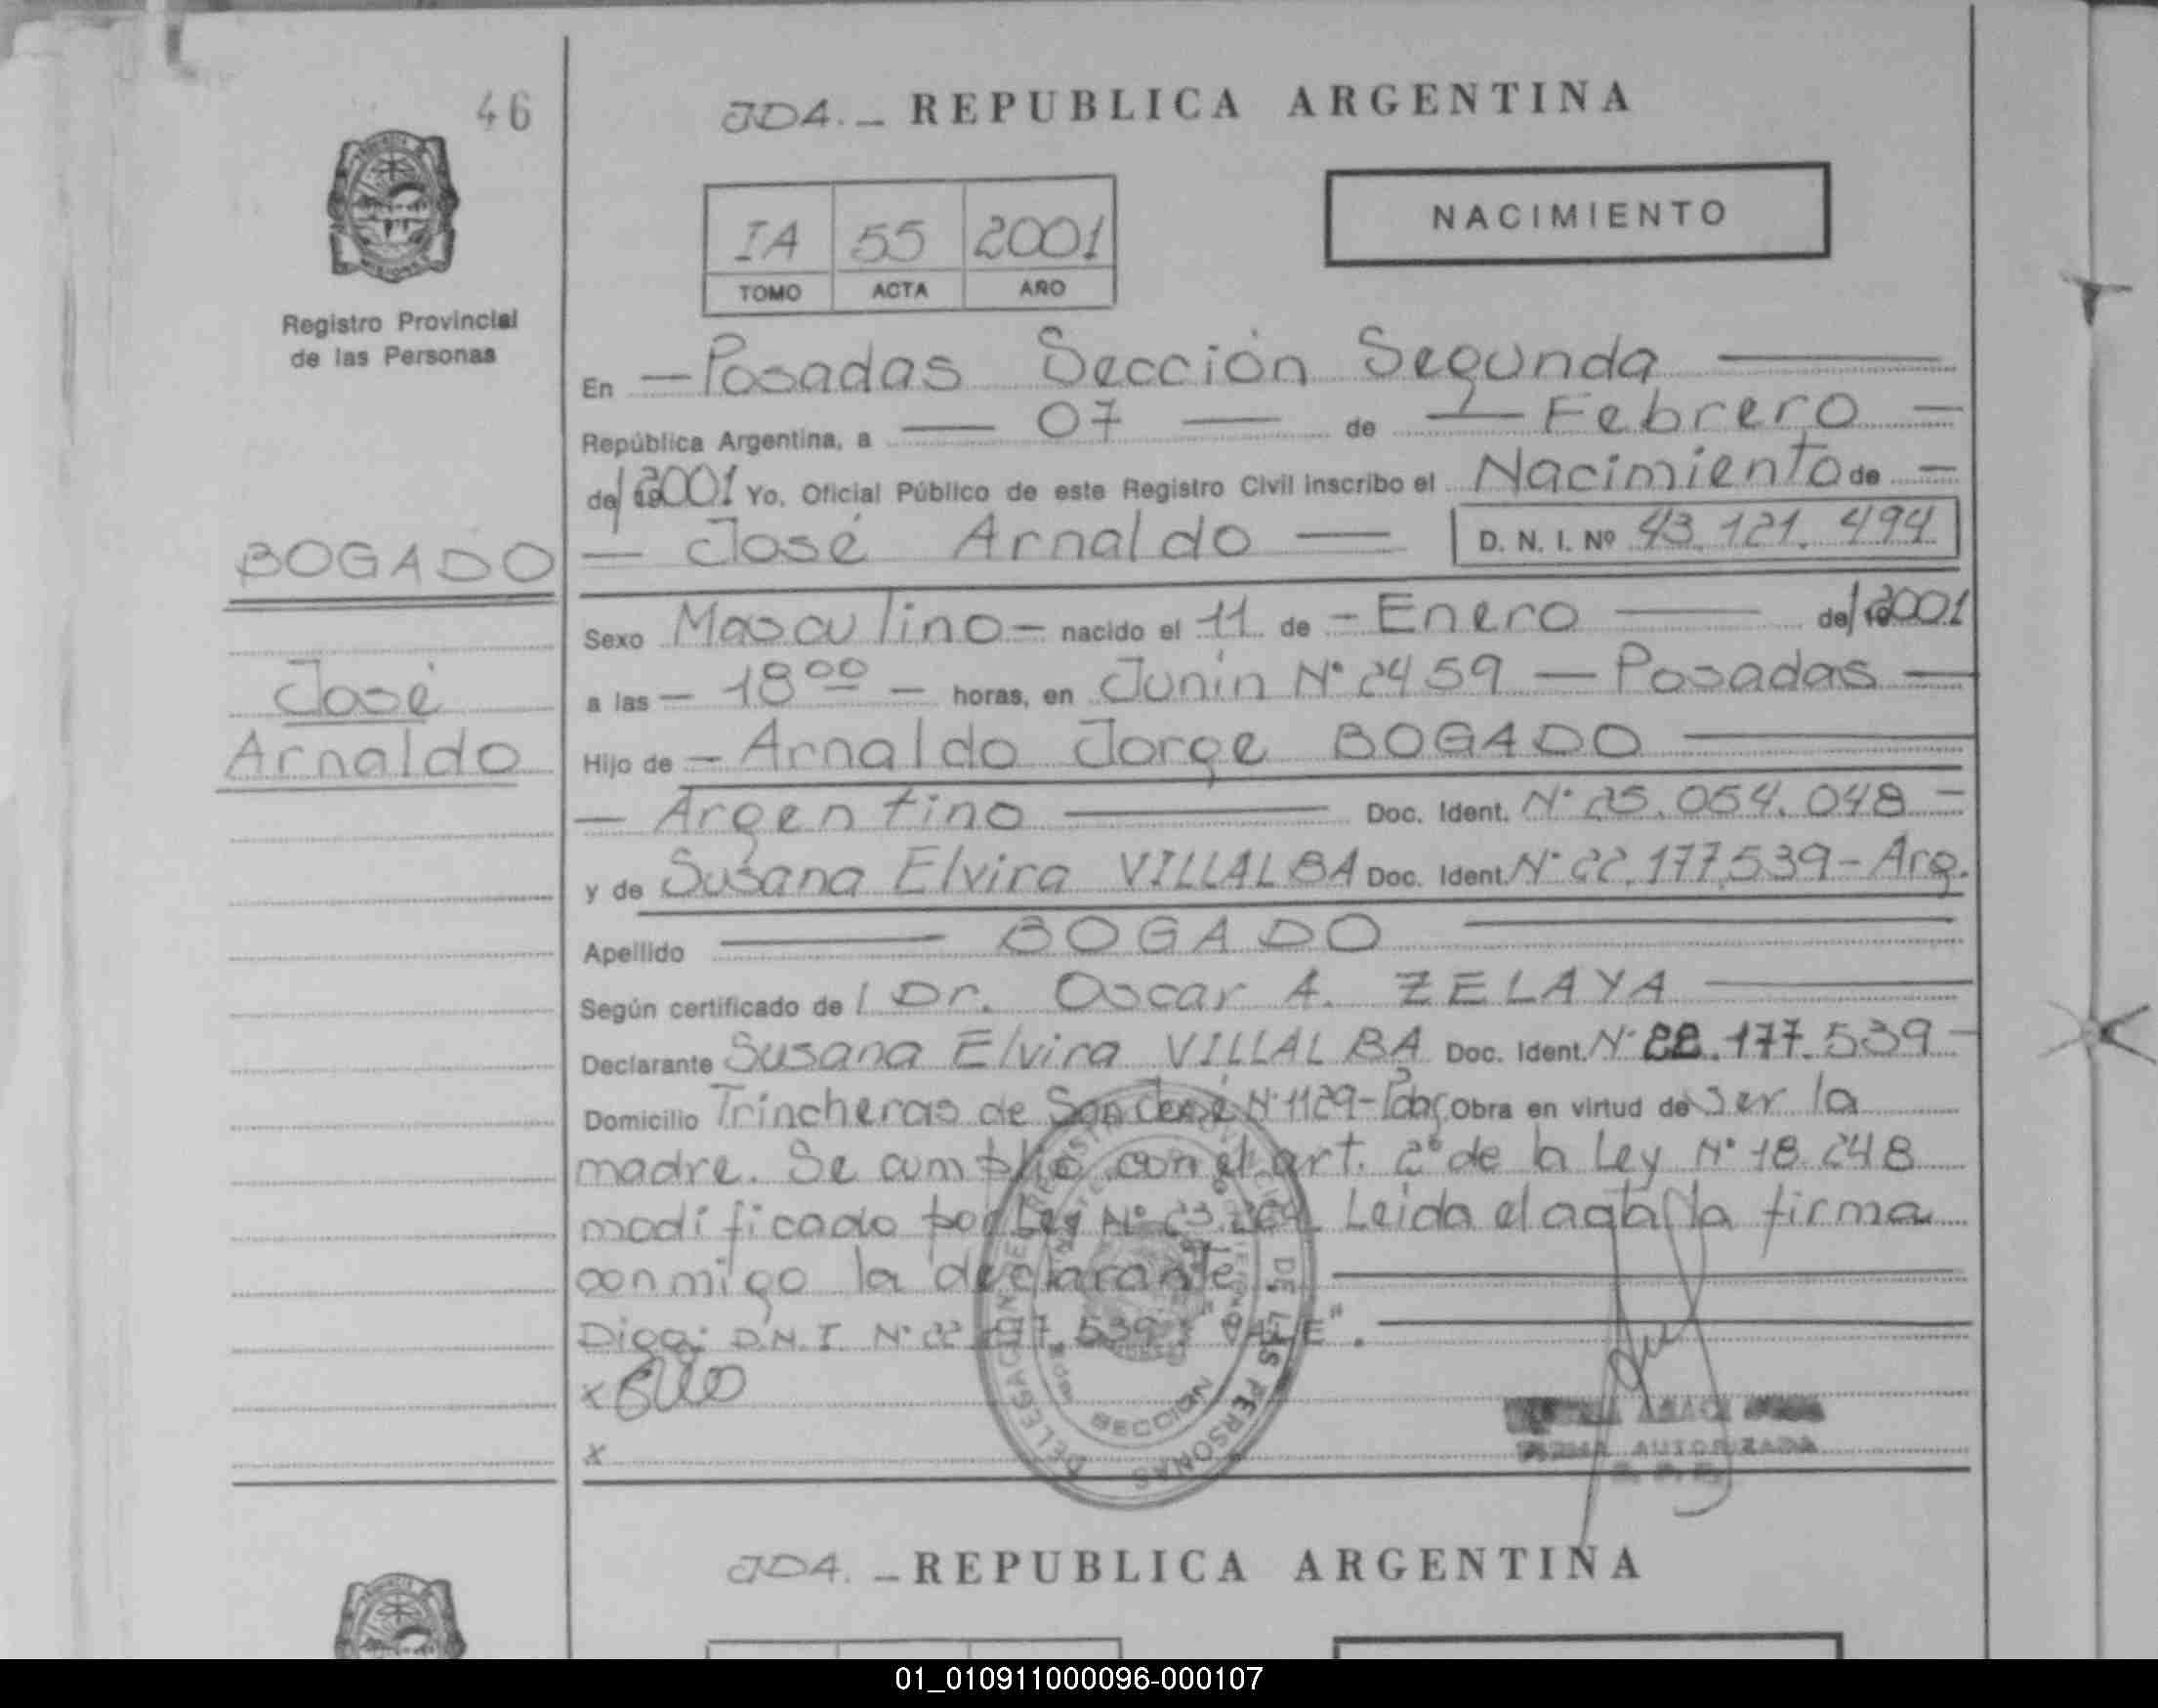 46
JDA. - REPUBLICA ARGENTINA
IA 55 2001
TOMO ACTA AÑO
NACIMIENTO
Registro Provincial
de las Personas
En - Posadas Sección Segunda
República Argentina, a 07 de Febrero
de 2001 Yo, Oficial Público de este Registro Civil inscribo el Nacimiento de
José Arnaldo D. N. I. Nº 43.121.494
BOGADO
José
Arnaldo
Sexo Masculino - nacido el 11 de - Enero de 2001
a las - 18 00 - horas, en Junín Nº 2459 - Posadas
Hijo de - Arnaldo Jorge BOGADO
Argentino Doc. Ident. Nº 25.054.048
y de Susana Elvira VILLALBA Doc. Ident. Nº 22.177.539 - Arg.
Apellido BOGADO
Según certificado de Dr. Oscar A. ZELAYA
Declarante Susana Elvira VILLALBA Doc. Ident. Nº 22.177.539
Domicilio Trincheras de San José Nº 1129 - Obra en virtud de Ser la
madre. Se cumplió con el art. 2º de la Ley Nº 18.248
modificado por Ley Nº Leida el acta la firma
conmigo la declarante
Diga: D.N.I. Nº 22.177.539 "VALE".
x
x
DELEGACION REGISTRO PROVINCIAL DE LAS PERSONAS
SECCION
FIRMA AUTORIZADA
JDA. - REPUBLICA ARGENTINA
01_010911000096-000107